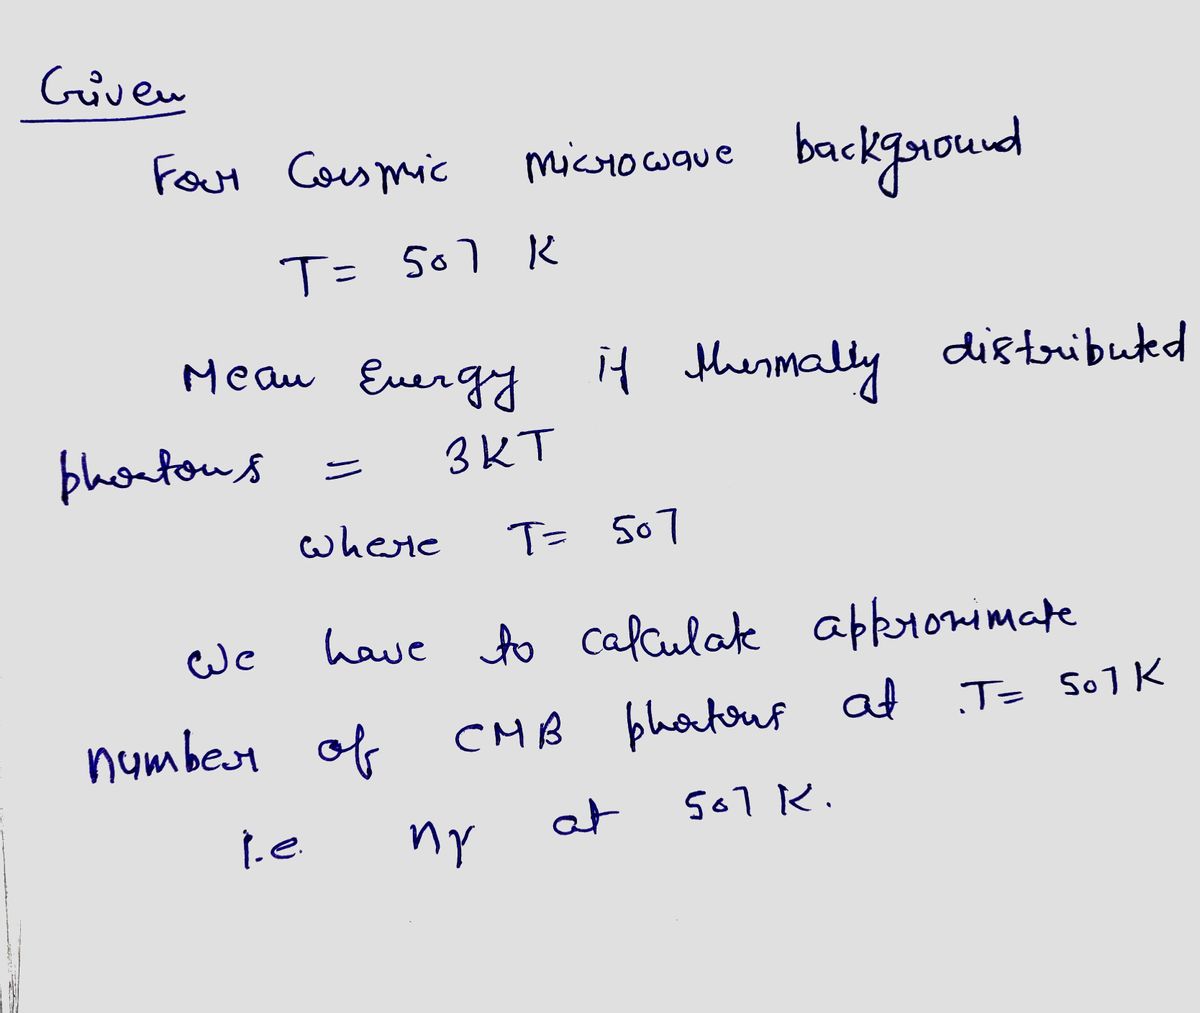 Given
For Cosmic microwave background
T= 507 K
Mean Energy if thermally distributed
photons = 3KT
where T= 507
We have to calculate approximate
number of CMB photons at T= 507K
i.e. nγ at 507 K.